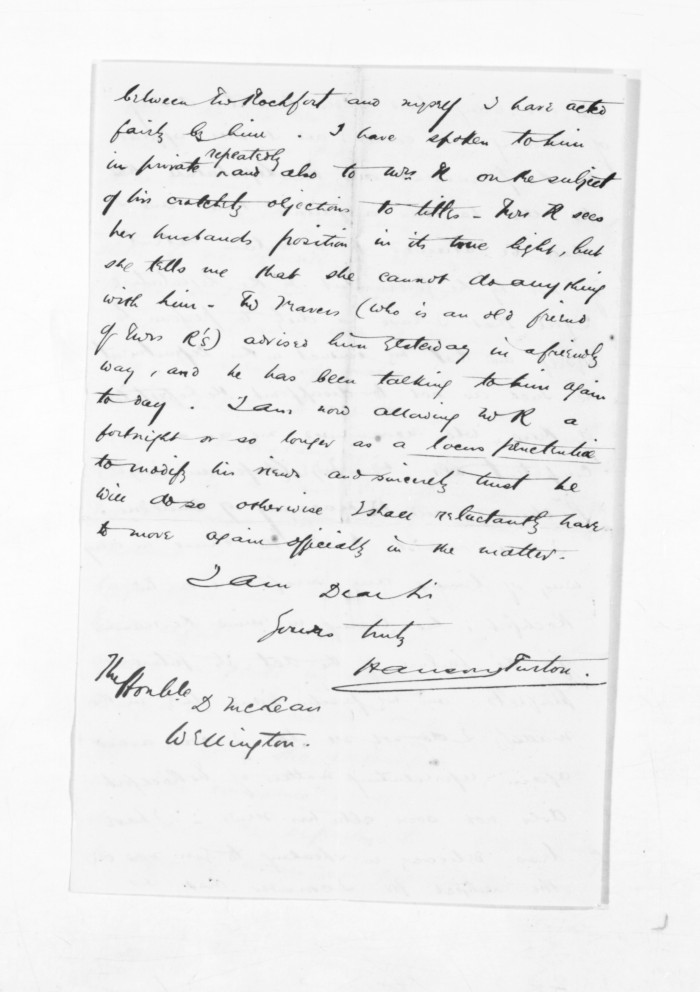 between Mr Rochfort and myself I have acted
fairly by him. I have spoken to him
in private repeatedly and also to Mrs. R on the subject
of his crotchety objections to titles - Mrs R sees
her husbands position in its true light, but
she tells me that she cannot do anything
with him - Mr Travers (who is an old friend
of Mrs R's) advised him yesterday in a friendly
way, and he has been talking to him again
to day. I am now allowing Mr R a
fortnight or so longer as a locus penitentiæ
to modify his views and sincerely trust he
will do so otherwise I shall reluctantly have
to move again officially in the matter.
I am Dear Sir
Yours truly
Hanson Turton.
The Honble.
D McLean
Wellington.